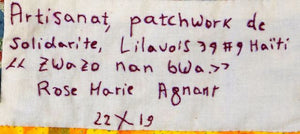 Artisanat, patchwork de
solidarite, Lilavois 39 #9 Haïti
<< Zwazo nan bwa.>>
Rose Marie Agnant
22 X 19